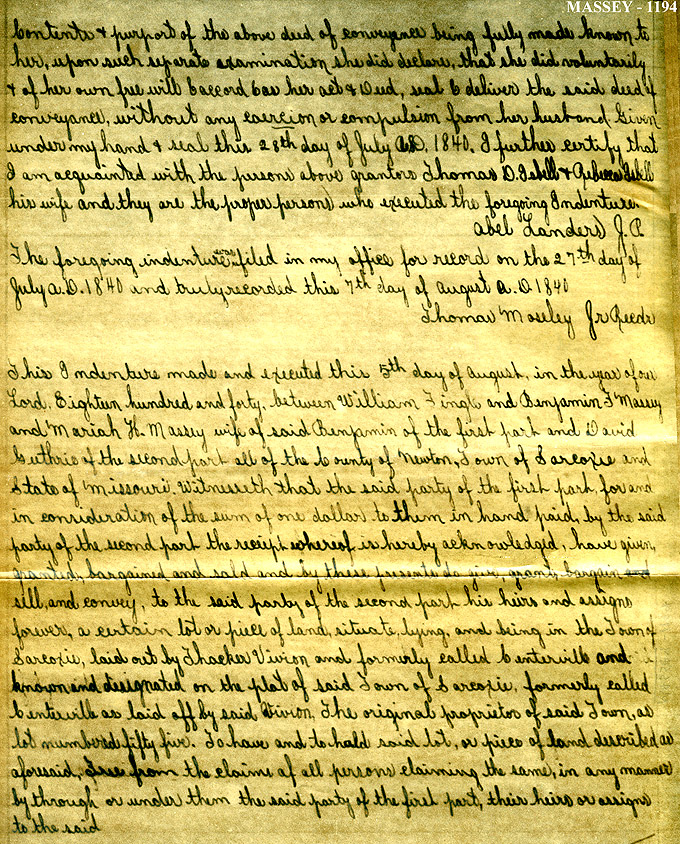 MASSEY - 1194
Contents & purport of the above deed of conveyance being fully made known to
her, upon such separate examination she did declare, that she did voluntarily
& of her own free will & accord & as her act & Deed, seal & deliver the said deed of
conveyance, without any coercion or compulsion from her husband. Given
under my hand & seal this 28th day of July A.D. 1840. I further certify that
I am acquainted with the persons above grantors Thomas D. Isbell & Rebecca Isbell
his wife and they are the proper persons who executed the foregoing Indenture.
Abel Landers J.P.
The foregoing indenture was filed in my office for record on the 27th day of
July A.D. 1840 and truly recorded this 7th day of August A.D. 1840
Thomas Moseley Jr Recdr
This Indenture made and executed this 5th day of August, in the year of our
Lord, Eighteen hundred and forty, between William Tingle and Benjamin F Massey
and Mariah H. Massey wife of said Benjamin of the first part and David
Guthrie of the second part all of the County of Newton, Town of Sarcoxie and
State of Missouri. Witnesseth, that the said party of the first part, for and
in consideration of the sum of one dollar to them in hand paid, by the said
party of the second part the receipt whereof is hereby acknowledged, have given,
granted, bargained and sold and by these presents do give, grant, bargain and
sell, and convey, to the said party of the second part his heirs and assigns
forever, a certain lot or piece of land, situate, lying, and being in the Town of
Sarcoxie, laid out by Thacker Vivion and formerly called Centerville and
known and designated on the plat of said Town of Sarcoxie, formerly called
Centerville as laid off by said Vivion, The original proprietor of said Town, as
lot numbered fifty five. To have and to hold said lot, or piece of land described as
aforesaid, free from the claims of all persons claiming the same, in any manner
by through or under them the said party of the first part, their heirs or assigns
to the said